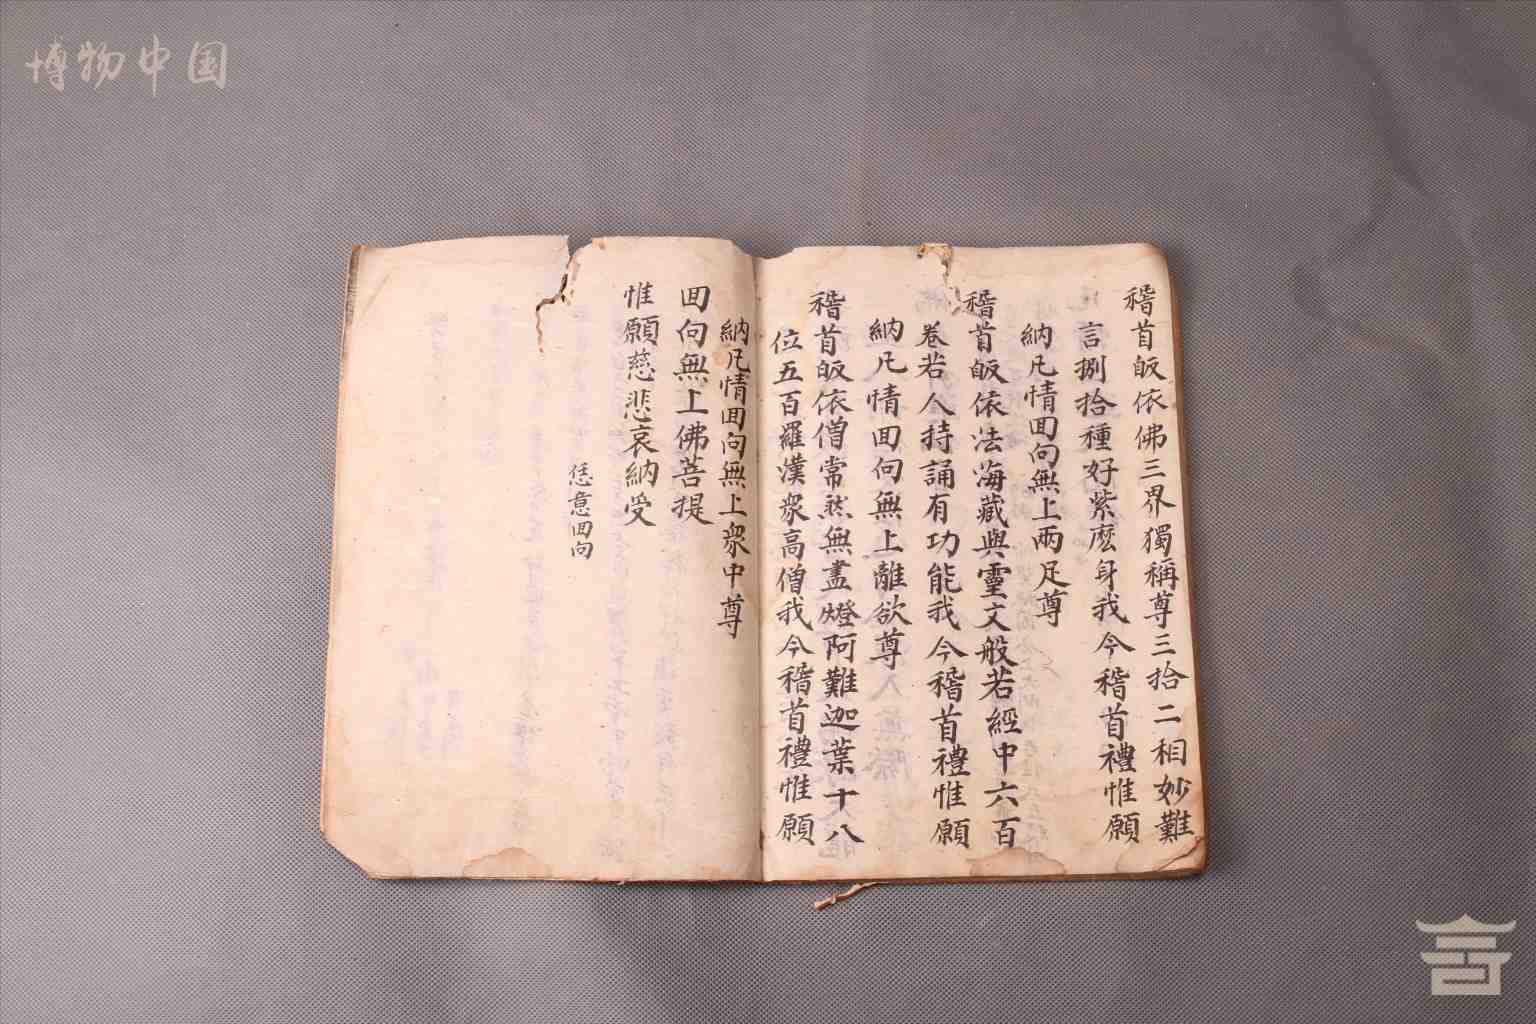 博物中国
稽首皈依佛三界獨稱尊三拾二相妙難
言捌拾種好紫麽身我今稽首禮惟願
納凡情回向無上兩足尊
稽首皈依法海藏與靈文般若經中六百
卷若人持誦有功能我今稽首禮惟願
納凡情回向無上離欲尊
稽首皈依僧常然無盡燈阿難迦葉十八
位五百羅漢衆高僧我今稽首禮惟願
納凡情回向無上衆中尊
回向無上佛菩提
惟願慈悲哀納受
恁意回向